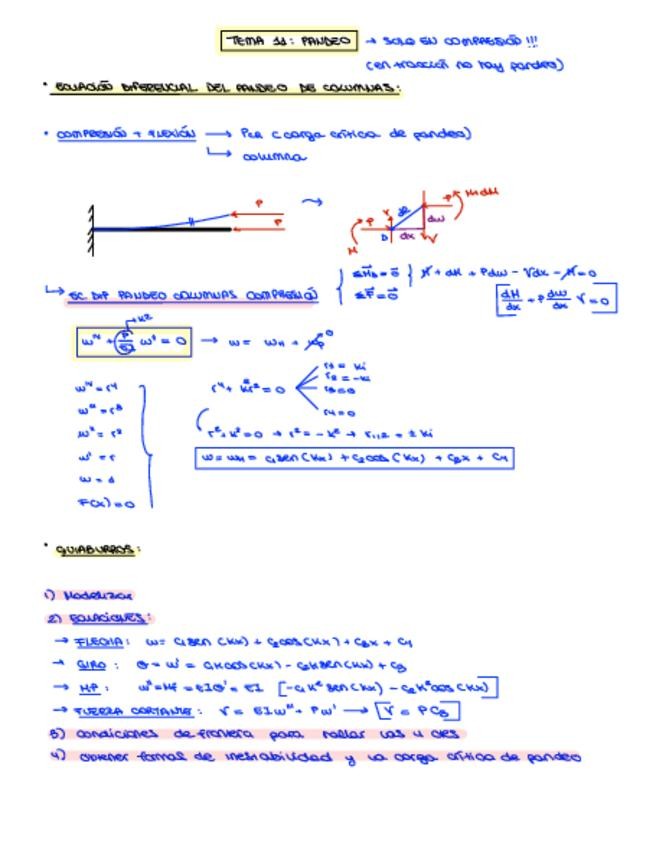 TEMA 11: PANDEO → SOLO EN COMPRESIÓN!!!
(en tracción no hay pandeo)
• ECUACIÓN DIFERENCIAL DEL PANDEO DE COLUMNAS:
• COMPRESIÓN + FLEXIÓN → Pcr (carga crítica de pandeo)
↳ columna
P
P
M+dM
P
V
dz
P
dw
M
D
dx
V
ΣM_D = 0 } M + dM + Pdw - Vdx - M = 0
ΣF = 0
dM/dx + P dw/dx - V = 0
↳ EC. DIF PANDEO COLUMNAS COMPRESIÓN
k²
w'''' + P/EI w'' = 0 → w = w_H + w_P 0
r1 = ki
r2 = -ki
r3 = 0
r4 = 0
w'''' = r⁴
r⁴ + k²r² = 0
w''' = r³
w'' = r²
r² + k² = 0 → r² = -k² → r1,2 = ± ki
w' = r
w = w_H = C1sen(kx) + C2cos(kx) + C3x + C4
w = 1
F(x) = 0
• GUIABURROS:
1) Modelizar
2) ECUACIONES:
→ FLECHA: w = C1sen(kx) + C2cos(kx) + C3x + C4
→ GIRO: θ = w' = C1kcos(kx) - C2ksen(kx) + C3
→ MF: w'' = Mf = EIθ' = EI [-C1k²sen(kx) - C2k²cos(kx)]
→ FUERZA CORTANTE: V = EIw''' + Pw' → [V = PC3]
3) condiciones de frontera para hallar las 4 ctes
4) obtener formas de inestabilidad y la carga crítica de pandeo